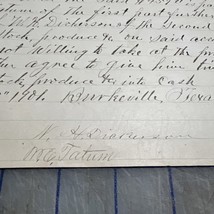 of the first part further
W.H. Dickerson of the Second
Stock, produce &c on said acc
not Willing to take at the pr
agree to give him
stock, produce &c into Cash
1901. Burkeville, Texas
W. H. Dickerson
W.C. Tatum